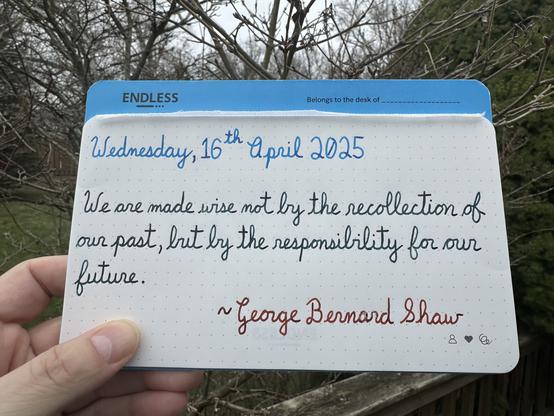 ENDLESS
Belongs to the desk of ____________________
Wednesday, 16th April 2025
We are made wise not by the recollection of
our past, but by the responsibility for our
future.
~George Bernard Shaw